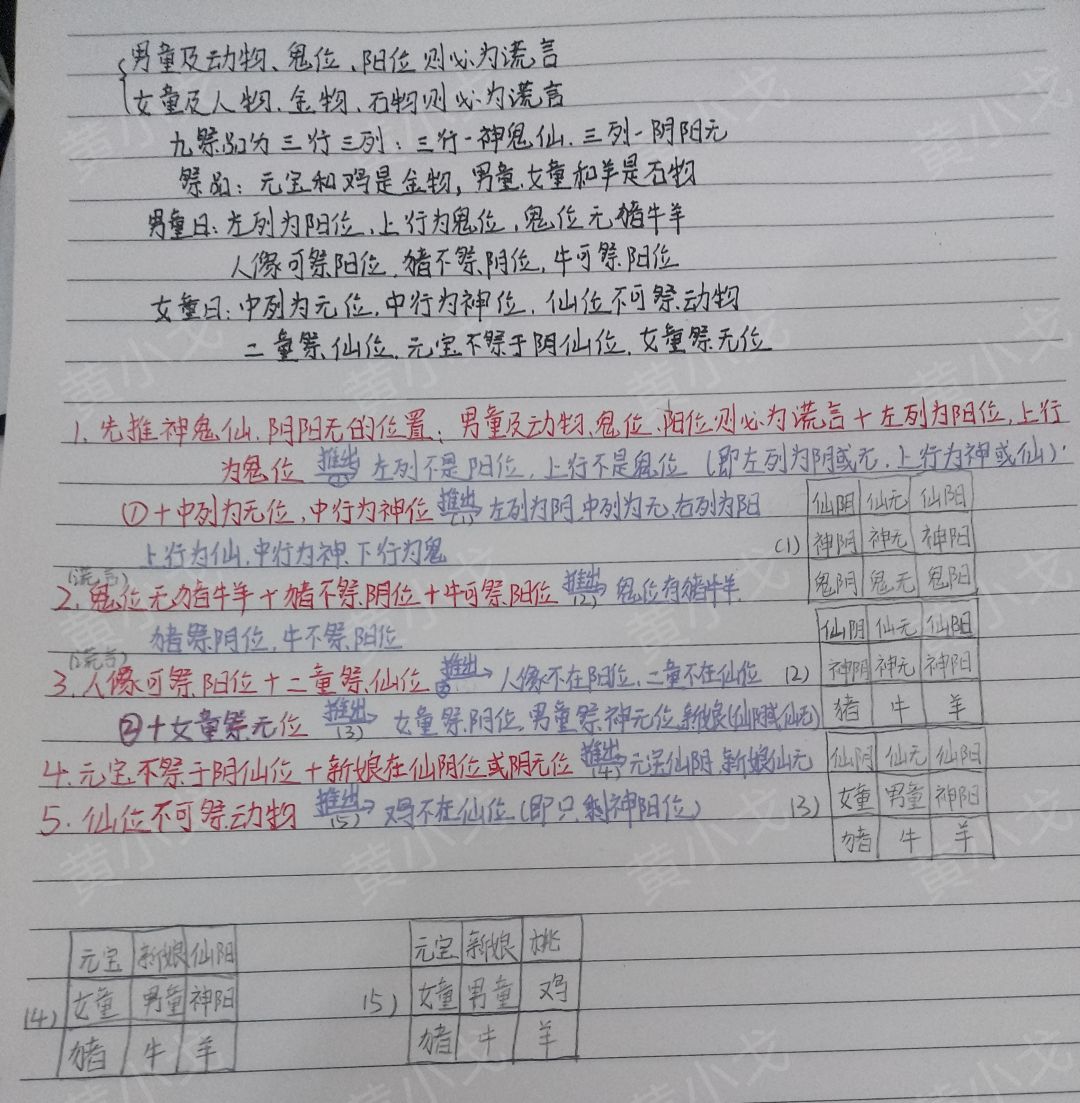 男童及动物、鬼位、阳位则必为谎言
女童及人物、金物、石物则必为谎言
九祭品为三行三列：三行-神鬼仙.三列-阴阳无
祭品：元宝和鸡是金物，男童.女童和羊是石物
男童曰：左列为阳位，上行为鬼位，鬼位无猪牛羊
人像可祭阳位，猪不祭阴位，牛可祭阳位
女童曰：中列为无位，中行为神位，仙位不可祭动物
二童祭仙位，元宝不祭于阴仙位，女童祭无位
1.先推神鬼仙.阴阳无的位置：男童及动物、鬼位、阳位则必为谎言+左列为阳位，上行
为鬼位 推出 ① 左列不是阳位，上行不是鬼位（即左列为阴或无，上行为神或仙）
①+中列为无位，中行为神位 推出 (1) 左列为阴，中列为无，右列为阳
上行为仙，中行为神，下行为鬼
(1) 仙阴 仙无 仙阳
神阴 神无 神阳
鬼阴 鬼无 鬼阳
(谎言)
2.鬼位无猪牛羊+猪不祭阴位+牛可祭阳位 推出 (2) 鬼位有猪牛羊
猪祭阴位，牛不祭阳位
(2) 仙阴 仙无 仙阳
神阴 神无 神阳
猪 牛 羊
(谎言)
3.人像可祭阳位+二童祭仙位 推出 ② 人像不在阳位，二童不在仙位
②+女童祭无位 推出 (3) 女童祭阴位，男童祭神无位，新娘(仙阴或仙无)
4.元宝不祭于阴仙位+新娘在仙阴位或阴无位 推出 (4) 元宝仙阴，新娘仙无
5.仙位不可祭动物 推出 (5) 鸡不在仙位（即只剩神阳位）
(3) 仙阴 仙无 仙阳
女童 男童 神阳
猪 牛 羊
(4) 元宝 新娘 仙阳
女童 男童 神阳
猪 牛 羊
(5) 元宝 新娘 桃
女童 男童 鸡
猪 牛 羊
黄小戈